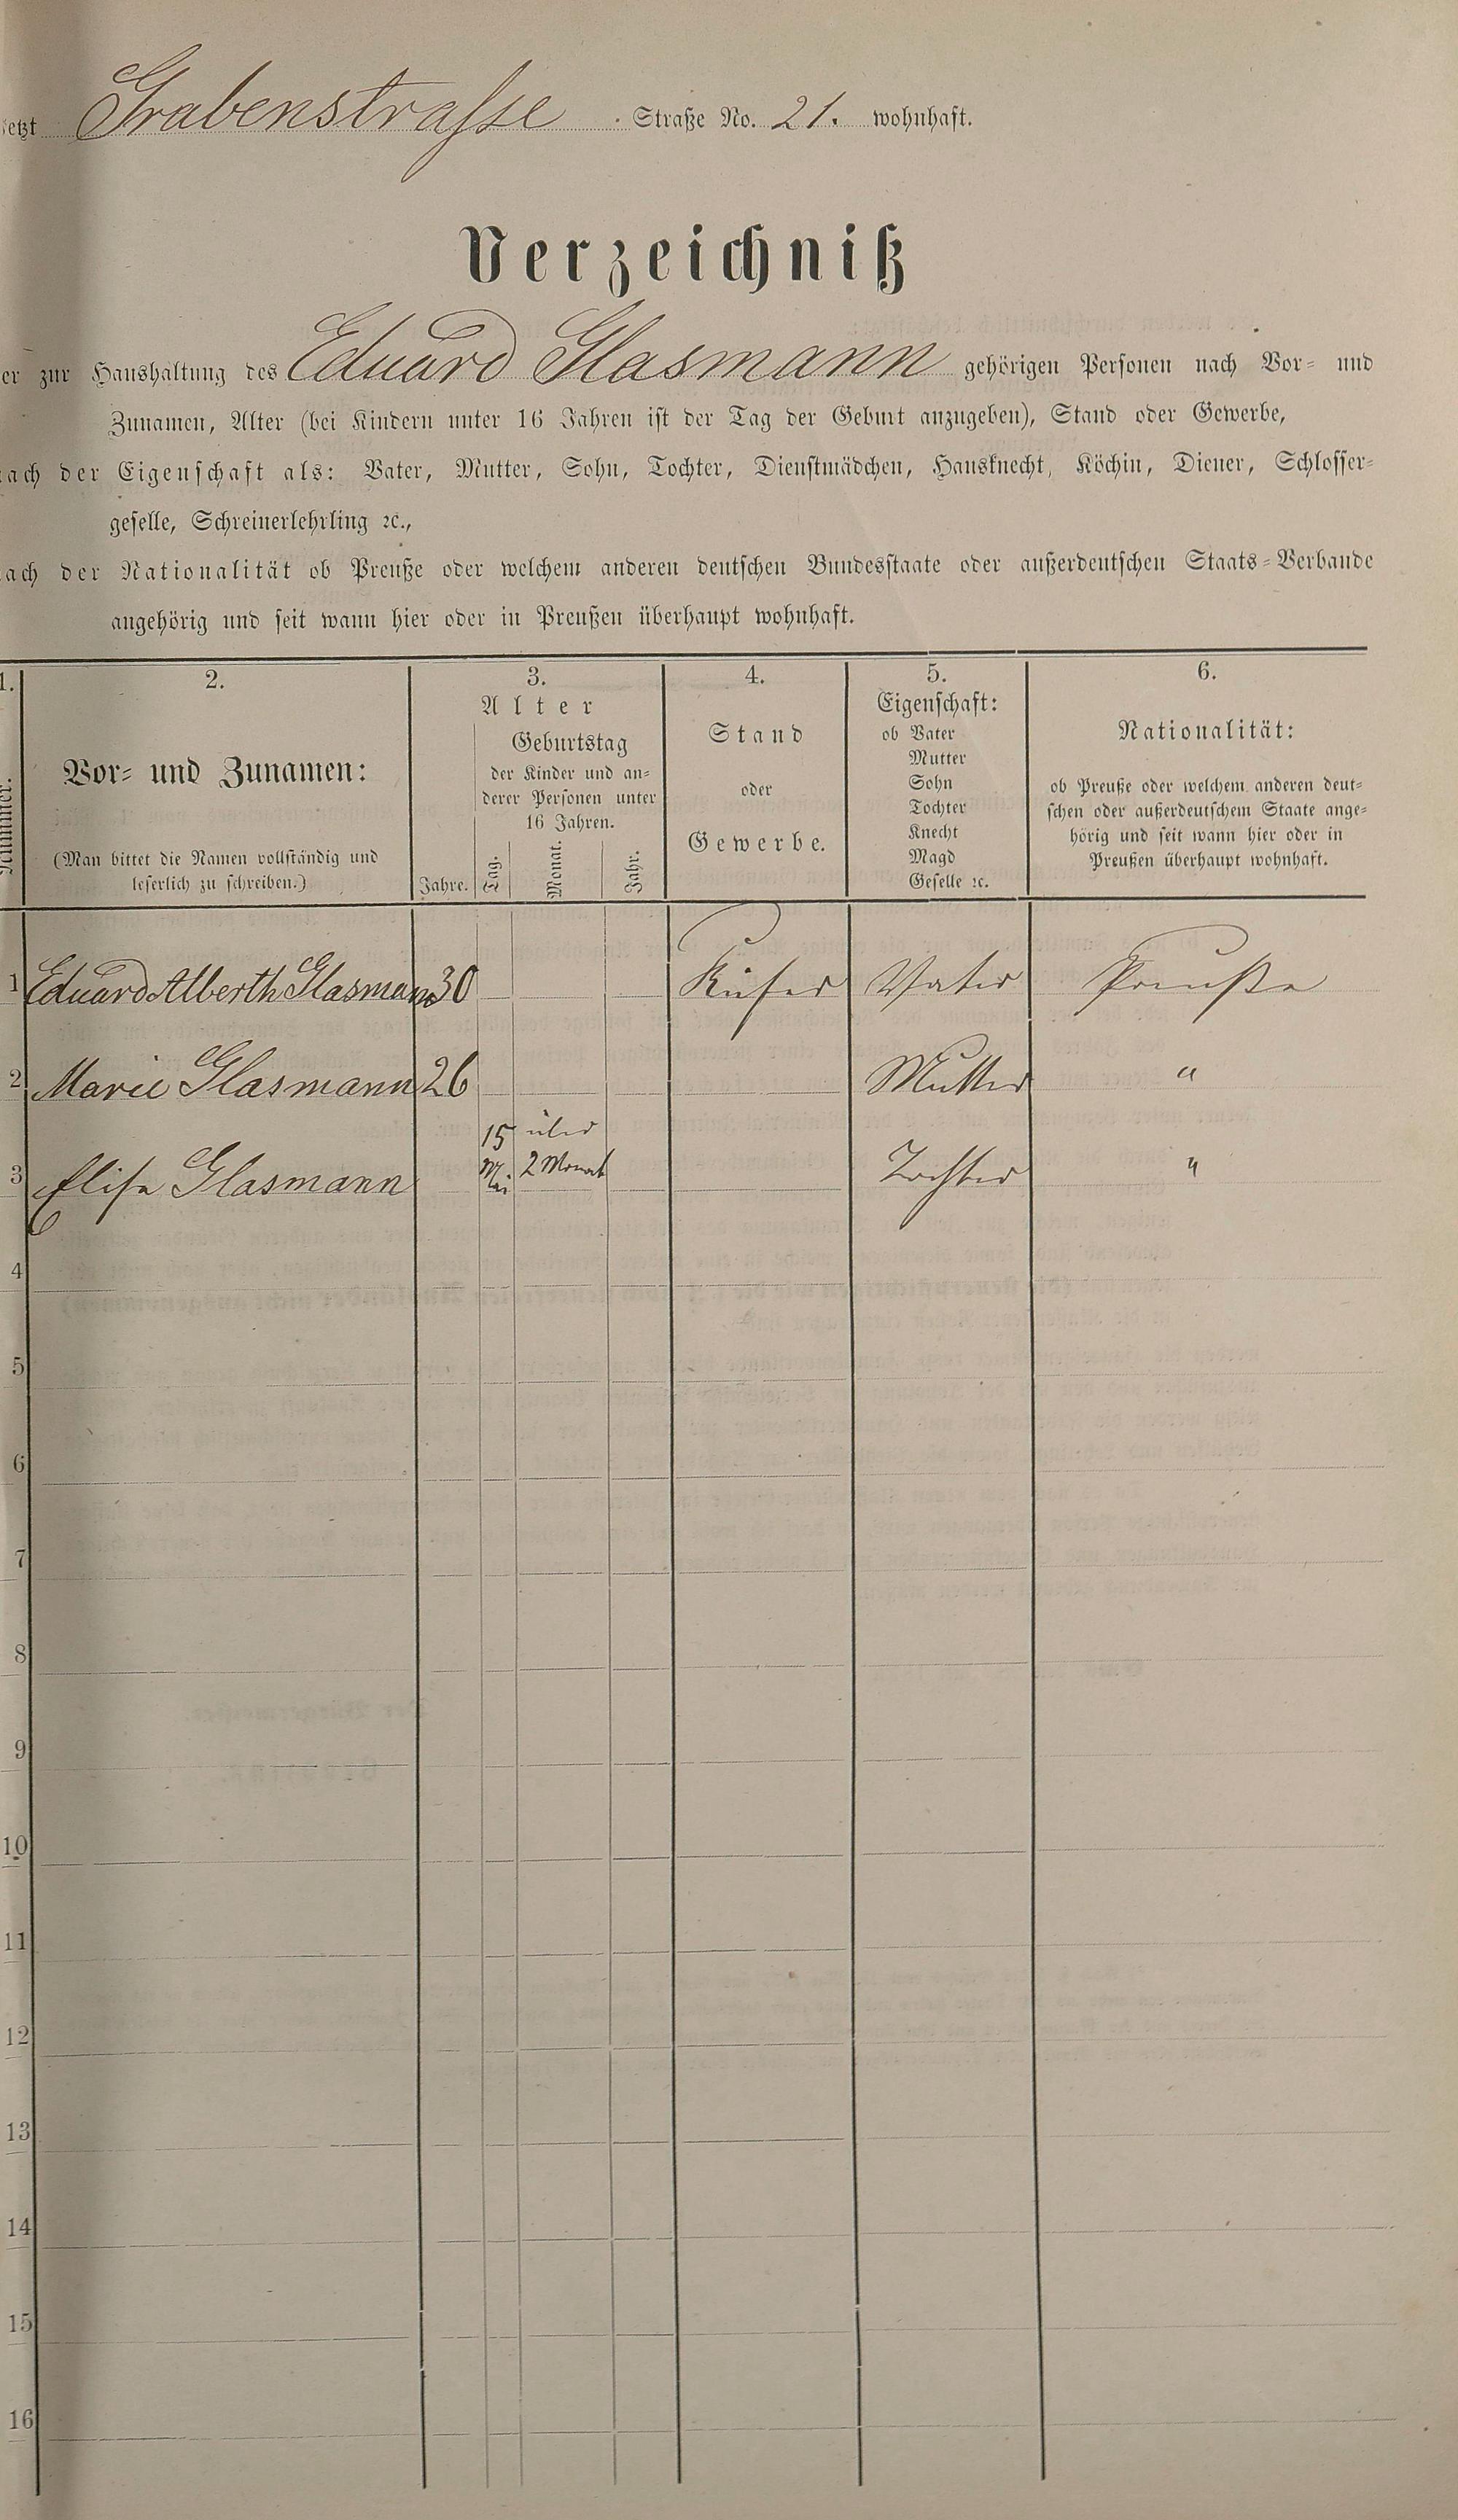 jetzt Grabenstraſse Straße No. 21. wohnhaft.
Verzeichniß
er zur Haushaltung des Eduard Glasmann gehörigen Personen nach Vor- und
Zunamen, Alter (bei Kindern unter 16 Jahren ist der Tag der Geburt anzugeben), Stand oder Gewerbe,
nach der Eigenschaft als: Vater, Mutter, Sohn, Tochter, Dienstmädchen, Hausknecht, Köchin, Diener, Schlosser-
geselle, Schreinerlehrling ꝛc.,
nach der Nationalität ob Preuße oder welchem anderen deutschen Bundesstaate oder außerdeutschen Staats-Verbande
angehörig und seit wann hier oder in Preußen überhaupt wohnhaft.
1. 2. 3. 4. 5. 6.
Nummer.
Vor- und Zunamen:
(Man bittet die Namen vollständig und
leserlich zu schreiben.)
Alter
Geburtstag
der Kinder und an-
derer Personen unter
16 Jahren.
Jahre. Tag. Monat. Jahr.
Stand
oder
Gewerbe.
Eigenschaft:
ob Vater
Mutter
Sohn
Tochter
Knecht
Magd
Geselle ꝛc.
Nationalität:
ob Preuße oder welchem anderen deut-
schen oder außerdeutschem Staate ange-
hörig und seit wann hier oder in
Preußen überhaupt wohnhaft.
1 Eduard Alberth Glasmann 30 Küfer Vater Preuße
2 Marie Glasmann 26 Mutter "
15 über
3 Elise Glasmann Mai 2 Monat Tochter "
4
5
6
7
8
9
10
11
12
13
14
15
16